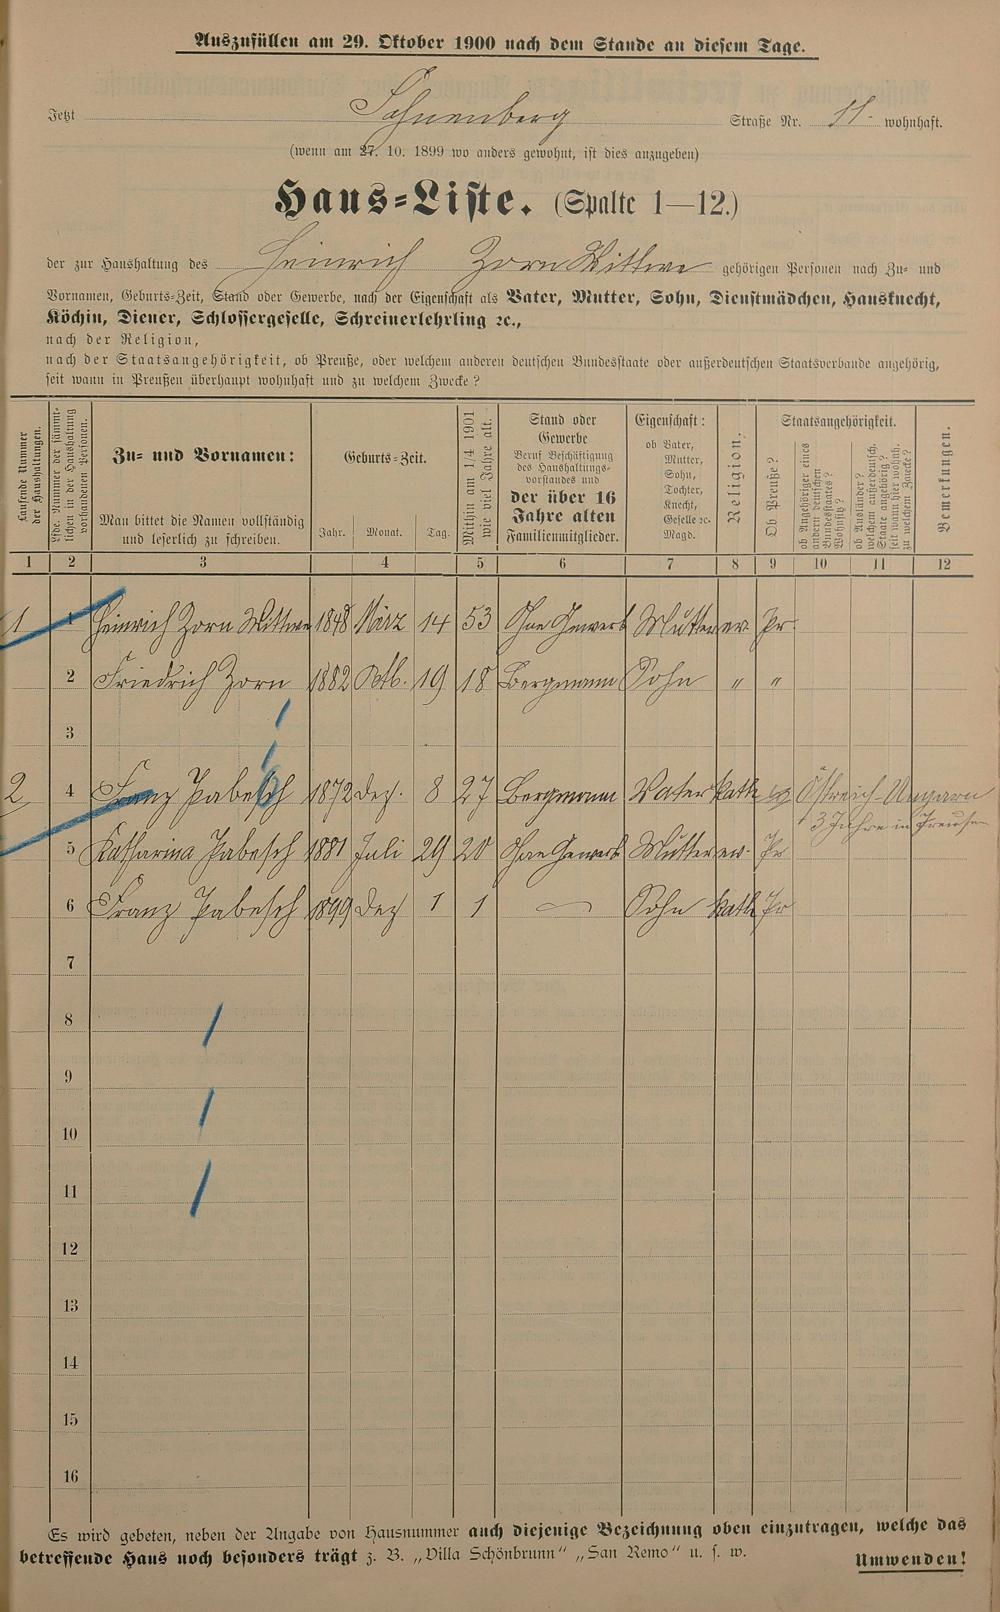 Auszufüllen am 29. Oktober 1900 nach dem Stande an diesem Tage.
Jetzt Schnenberg Straße Nr. 11. wohnhaft.
(wenn am 27. 10. 1899 wo anders gewohnt, ist dies anzugeben)
Haus-Liste. (Spalte 1—12.)
der zur Haushaltung des Heinrich Zorn Wittwe gehörigen Personen nach Zu- und
Vornamen, Geburts-Zeit, Stand oder Gewerbe, nach der Eigenschaft als Vater, Mutter, Sohn, Dienstmädchen, Hausknecht,
Köchin, Diener, Schlossergeselle, Schreinerlehrling ꝛc.,
nach der Religion,
nach der Staatsangehörigkeit, ob Preuße, oder welchem anderen deutschen Bundesstaate oder außerdeutschen Staatsverbande angehörig,
seit wann in Preußen überhaupt wohnhaft und zu welchem Zwecke?
Laufende Nummer
der Haushaltungen.
Lfde. Nummer der sämmt-
lichen in der Haushaltung
vorhandenen Personen.
Zu- und Vornamen:
Man bittet die Namen vollständig
und leserlich zu schreiben.
Geburts-Zeit.
Jahr. Monat. Tag.
Mithin am 1/4 1901
wie viel Jahre alt.
Stand oder
Gewerbe
Beruf Beschäftigung
des Haushaltungs-
vorstandes und
der über 16
Jahre alten
Familienmitglieder.
Eigenschaft:
ob Vater,
Mutter,
Sohn,
Tochter,
Knecht,
Geselle ꝛc.
Magd.
Religion.
Staatsangehörigkeit.
Ob Preuße?
ob Angehöriger eines
andern deutschen
Bundesstaates?
Wohnsitz?
ob Ausländer?
welchem außerdeutsch.
Staate angehörig?
seit wann hier wohnh.
zu welchem Zwecke?
Bemerkungen.
1 2 3 4 5 6 7 8 9 10 11 12
1 1 Heinrich Zorn Wittwe 1848 März 14 53 Ohne Gewerb Mutter ev. Pr.
2 Friedrich Zorn 1882 Oktb. 19 18 Bergmann Sohn " "
3
2 4 Franz Pabesch 1872 Dez. 8 27 Bergmann Vater kath Östreich-Ungarn
3 Jahre in Preusen
5 Katharina Pabesch 1881 Juli 29 20 Ohne Gewerb Mutter ev. Pr
6 Franz Pabesch 1899 Dez 1 1 — Sohn kath Pr
7
8
9
10
11
12
13
14
15
16
Es wird gebeten, neben der Angabe von Hausnummer auch diejenige Bezeichnung oben einzutragen, welche das
betreffende Haus noch besonders trägt z. B. „Villa Schönbrunn" „San Remo" u. s. w.
Umwenden!